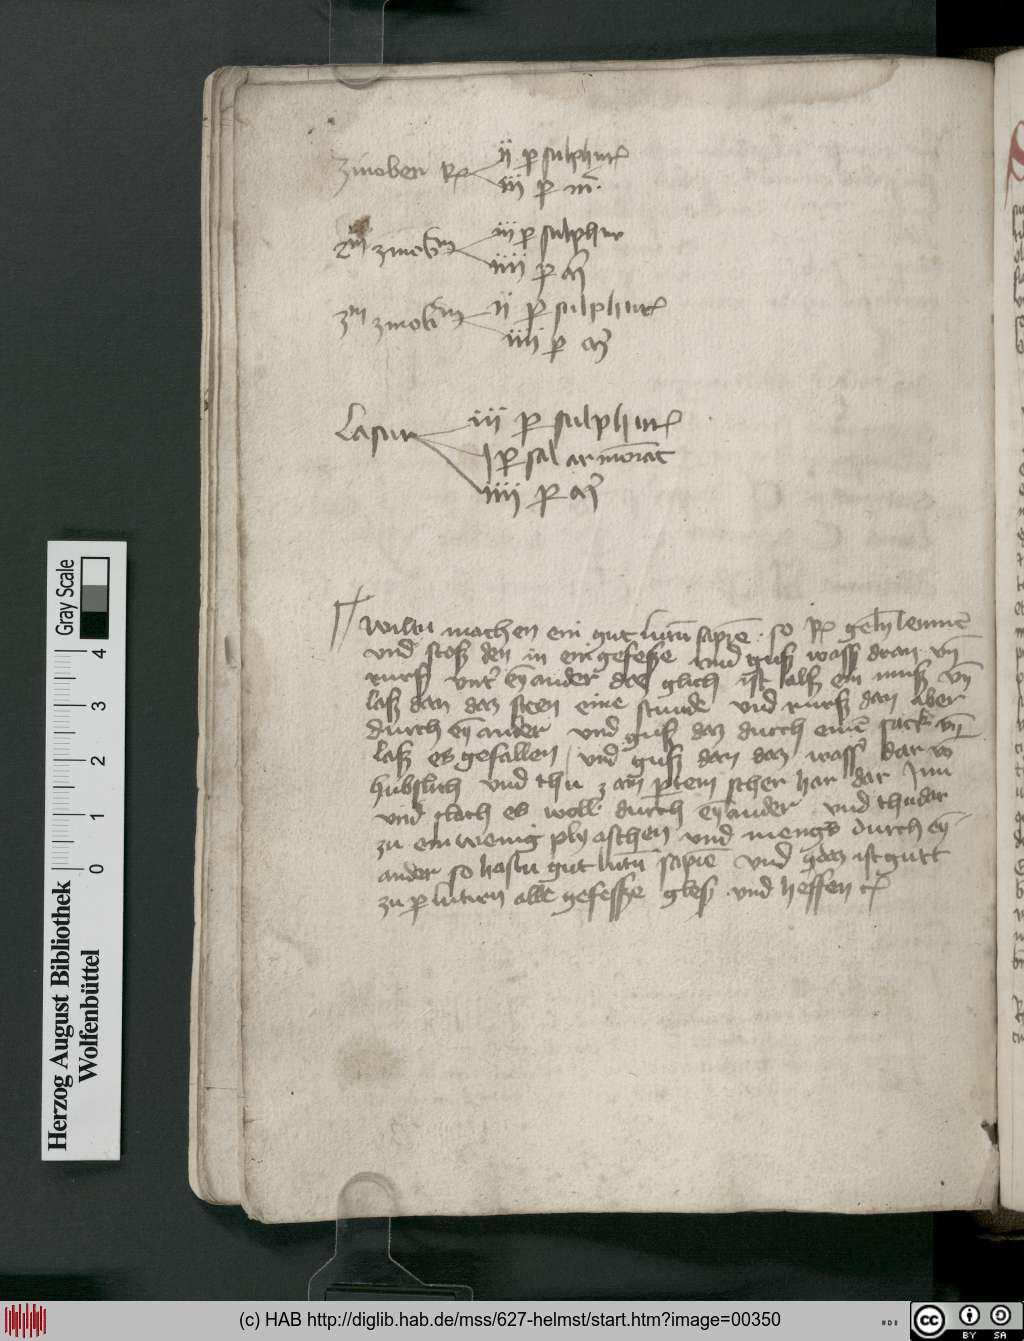 zinober Rp ii p sulphuris
iii p m.
2m zinobrm iii p sulphur
iiii p
3m zinobrm ii p sulphuris
iiii p
Lasur iii p sulphuris
i p sal armoniac
iiii p
Wiltu machen ein gut lutū sapiē so Rp gelm lemmē
vnd stoß den in ein gefesße vnd guß wasß dran vn̄
rurß vntr eynander das glich ist alß ein muß vn̄
laß dan daz steen eine stunde vnd rurß dan aber
durch eynander vnd guß daz durch einē sack vn̄
laß es gefallen vnd guß dan daz wasß dar vō
hubslich vnd thu scher har dar Inn
vnd slach es woll durch eynander vnd thu dar
zu ein wenig ply aschen vnd mengs durch eyn
ander so hastu gut lutū sapiē vnd daz ist gutt
zu p lutirn alle gefesße gleß vnd heffen
Herzog August Bibliothek
Wolfenbüttel
Gray Scale
0 1 2 3 4
(c) HAB http://diglib.hab.de/mss/627-helmst/start.htm?image=00350
cc BY SA